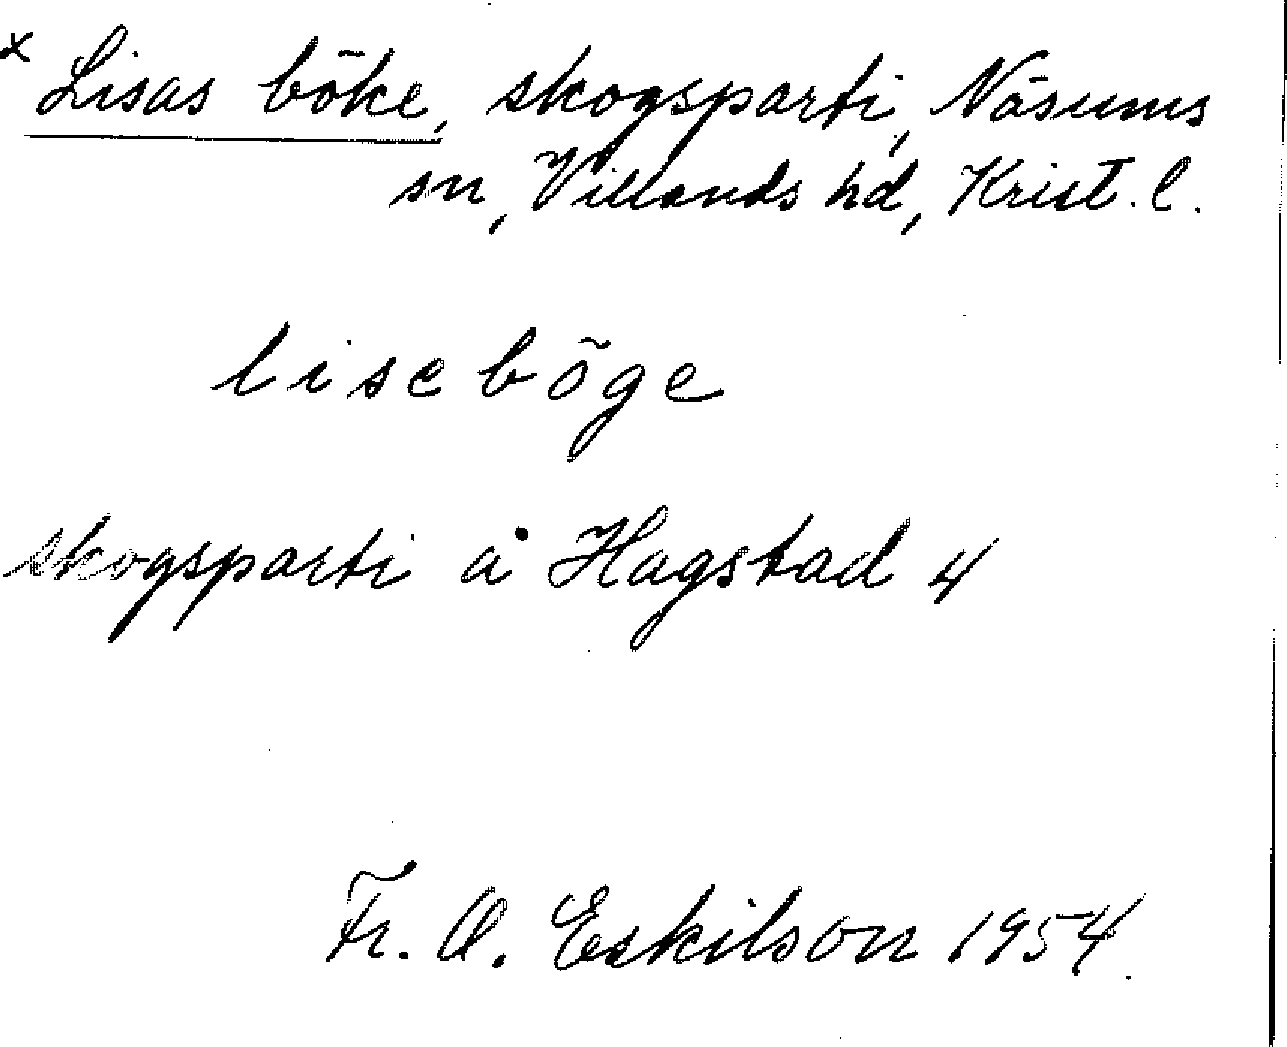 x Lisas böke, skogsparti, Näsums
sn, Villands hd, Krist. l.
lise böge
skogsparti å Hagstad 4
Fr. O. Eskilson 1954